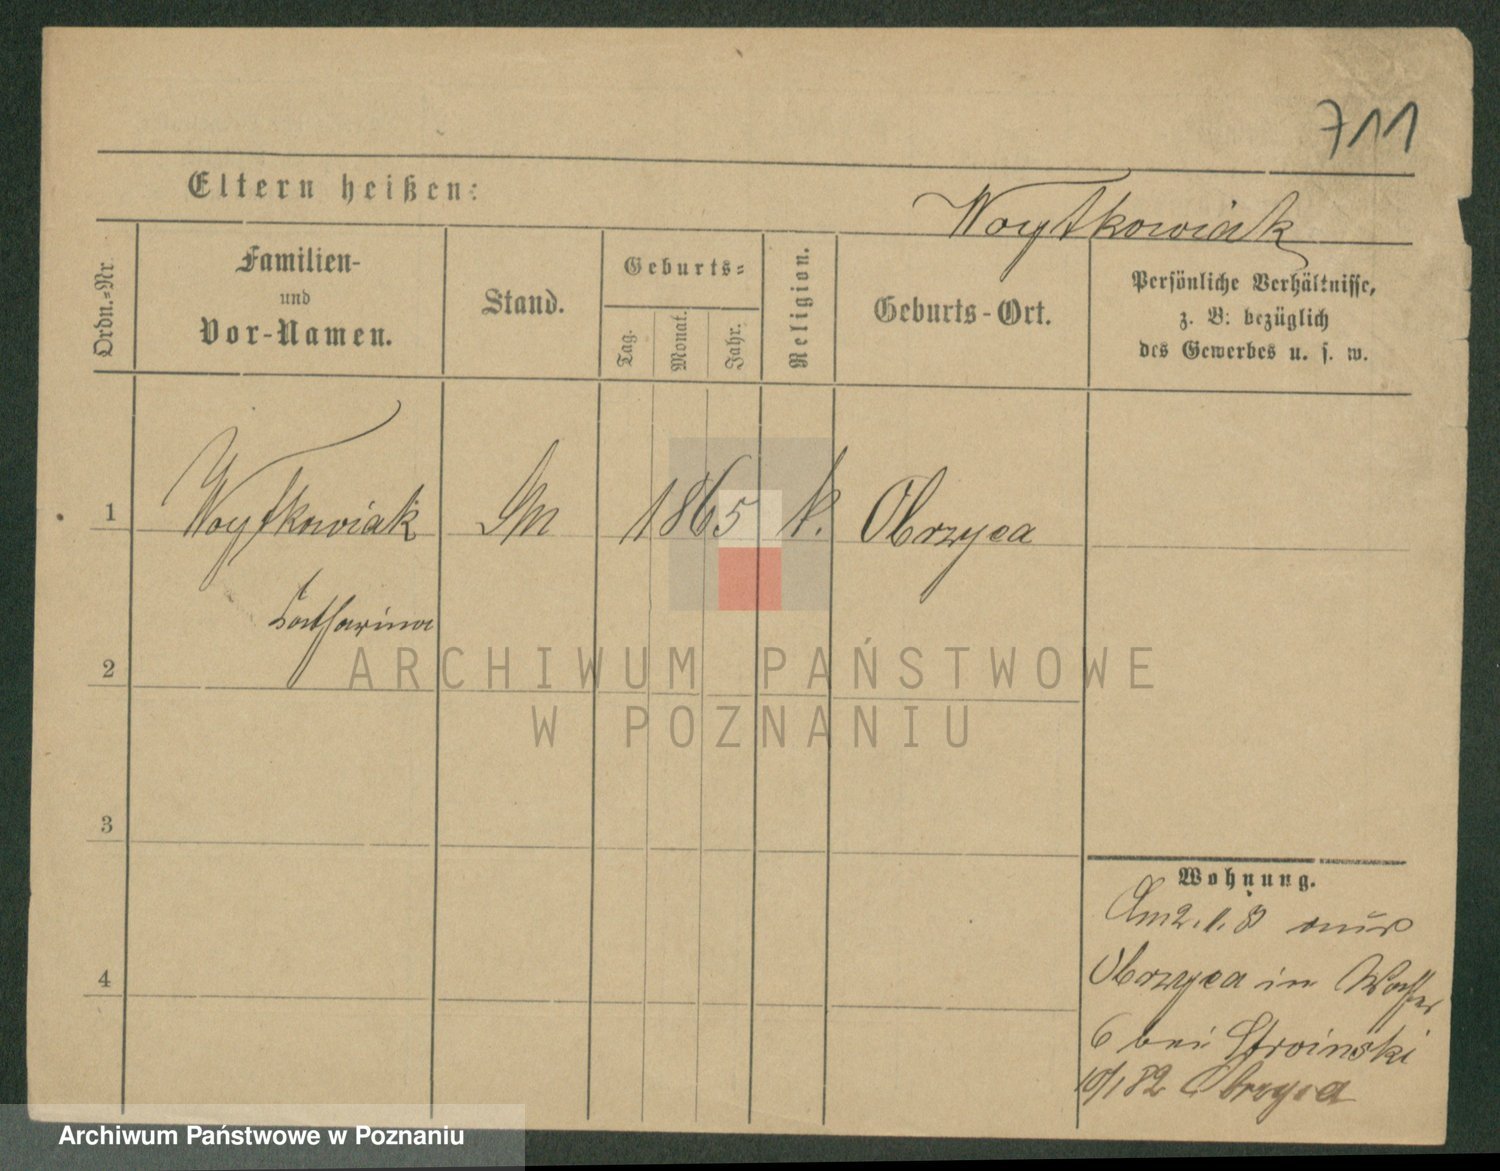 711
Eltern heißen:
Woytkowiak
Ordn.-Nr.
Familien-
und
Vor-Namen.
Stand.
Geburts-
Tag.
Monat.
Jahr.
Religion.
Geburts-Ort.
Persönliche Verhältnisse,
z. B: bezüglich
des Gewerbes u. s. w.
1 Woytkowiak 1865 k. Obrzyca
Catharina
2
3
4
Wohnung.
Am 2. 1. 8 aus
Obrzyca in
6 bei Stroinski
10/1 82 Obrzyca
ARCHIWUM PAŃSTWOWE
W POZNANIU
Archiwum Państwowe w Poznaniu